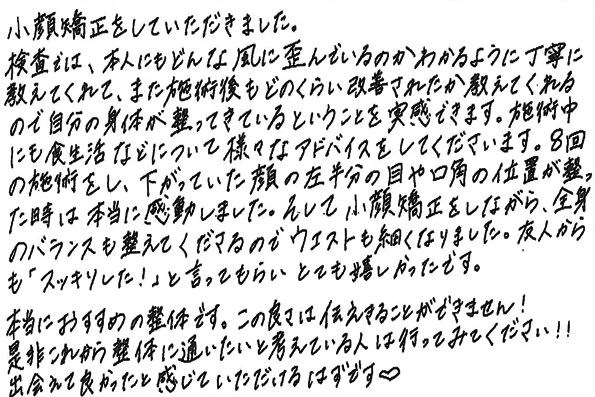 小顔矯正をしていただきました。
検査では、本人にもどんな風に歪んでいるのかわかるように丁寧に
教えてくれて、また施術後もどのくらい改善されたか教えてくれる
ので自分の身体が整ってきているということを実感できます。施術中
にも食生活などについて様々なアドバイスをしてくださいます。8回
の施術をし、下がっていた顔の左半分の目や口角の位置が整っ
た時は本当に感動しました。そして小顔矯正をしながら、全身
のバランスも整えてくださるのでウエストも細くなりました。友人から
も「スッキリした！」と言ってもらいとても嬉しかったです。
本当におすすめの整体です。この良さは伝えきることができません！
是非これから整体に通いたいと考えている人は行ってみてください!!
出会えて良かったと感じていただけるはずです♡